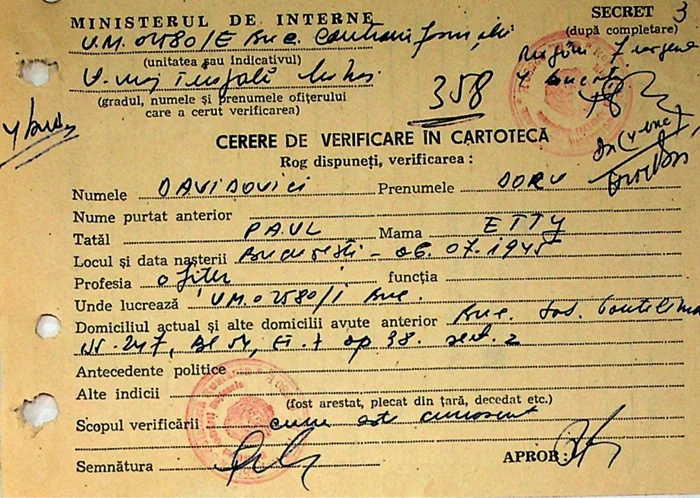 MINISTERUL DE INTERNE
SECRET 3
(după completare)
U.M. 02580/E Buc.
(unitatea sau indicativul)
(gradul, numele și prenumele ofițerului
care a cerut verificarea)
358
CERERE DE VERIFICARE ÎN CARTOTECĂ
Rog dispuneți, verificarea :
Numele DAVIDOVICI Prenumele DORU
Nume purtat anterior
Tatăl PAUL Mama ETTY
Locul și data nașterii București - 06.07.1945
Profesia ofițer funcția
Unde lucrează U.M. 02580/I Buc.
Domiciliul actual și alte domicilii avute anterior Buc. Șos.
Nr. 247, Bl 54, ap 38. sect. 2
Antecedente politice
Alte indicii
(fost arestat, plecat din țară, decedat etc.)
Scopul verificării cum este cunoscut
Semnătura APROB: